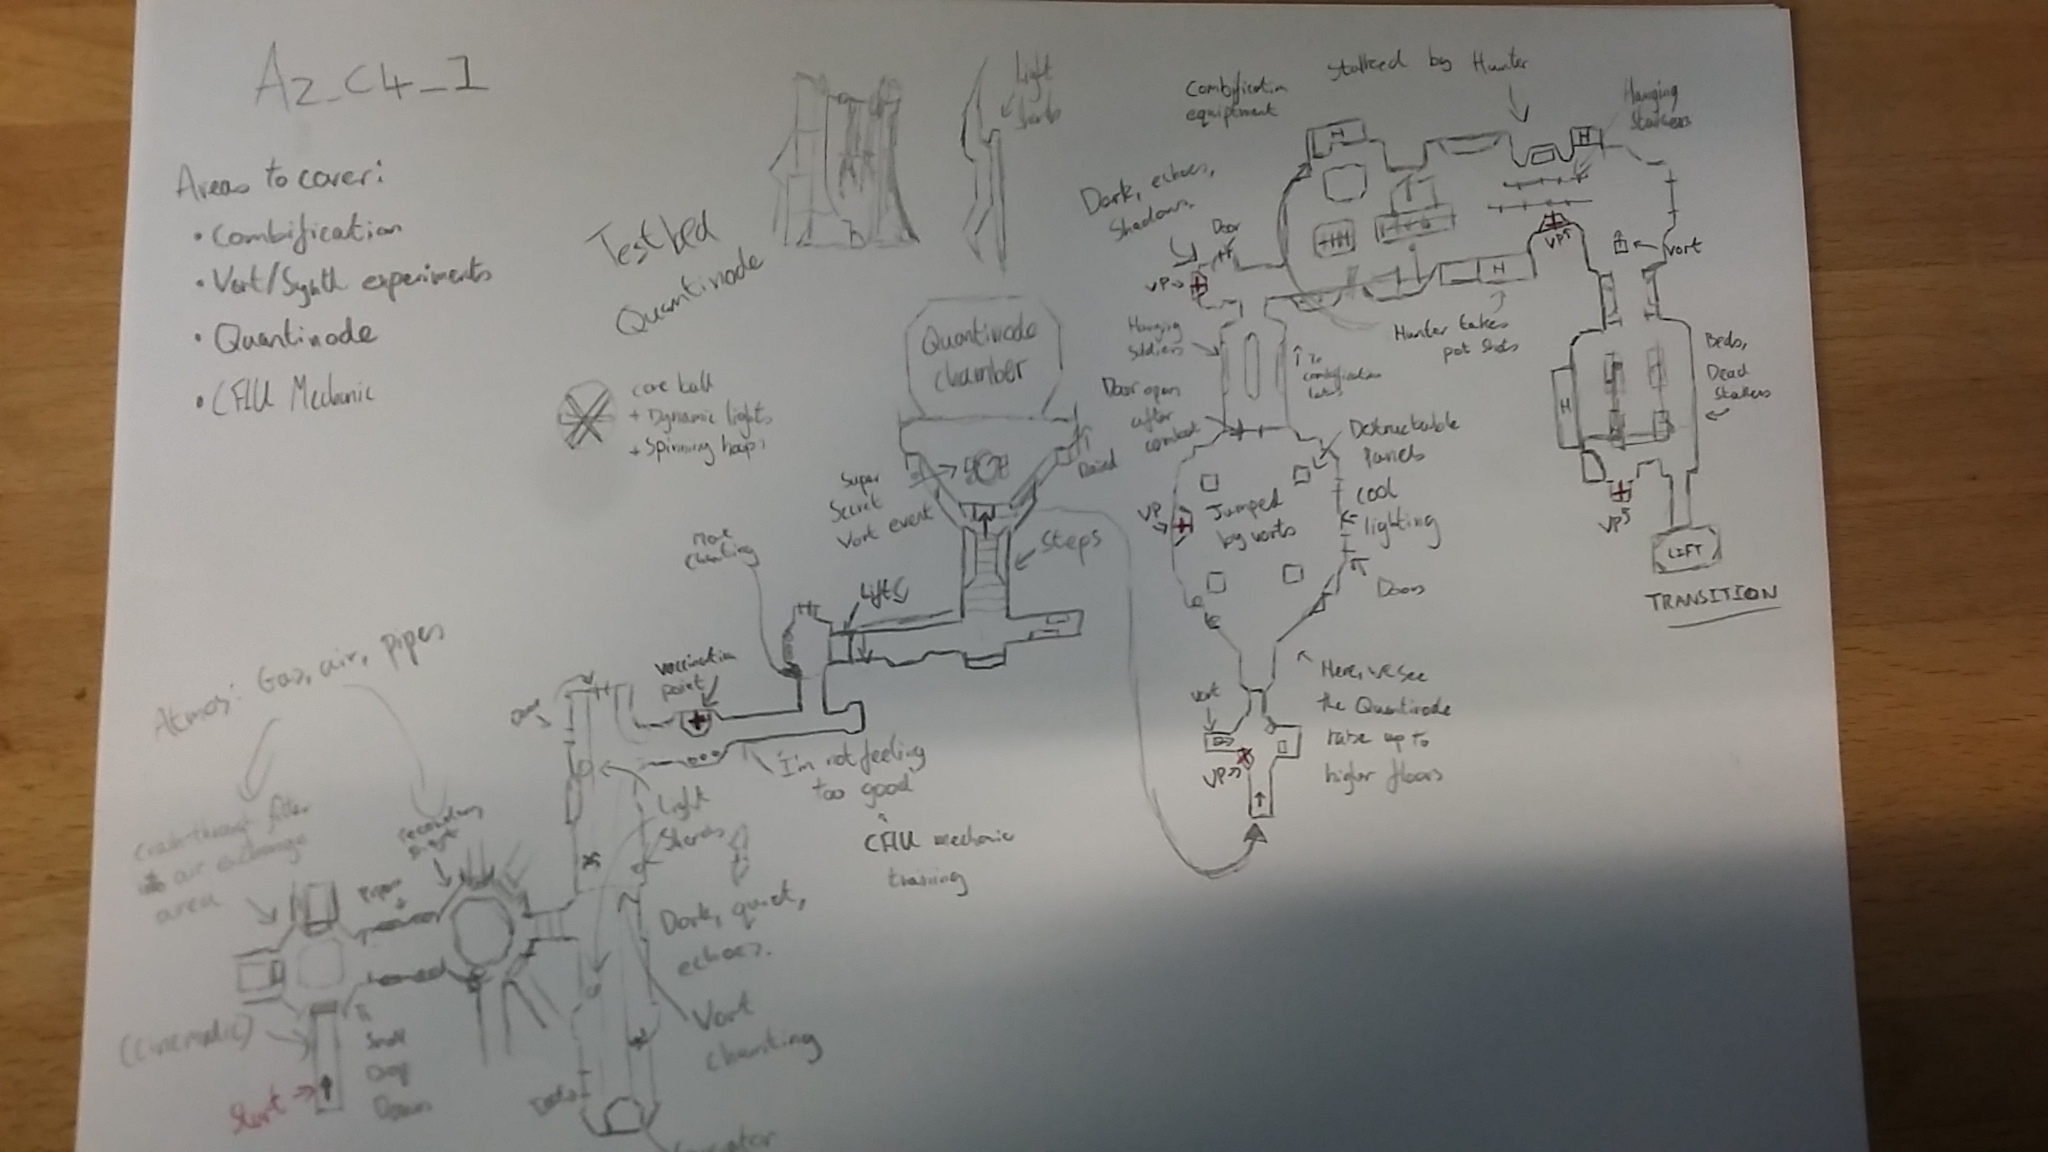 A2_C4_1
Areas to cover:
• Combification
• Vort/Synth experiments
• Quantinode
• CFIU Mechanic
Testbed
Quantinode
Light
Shards
core ball
+ Dynamic lights
+ Spinning hoops
Quantinode
chamber
Super
Secret
Vort event
Steps
More
chanting
Lift
vaccination
point
I'm not feeling
too good
CFIU mechanic
training
Atmos: Gas, air, pipes
Crash through filter
air exchange
area
Pipes
Door
Light
Shards
Dark, quiet,
echoes.
Vort
chanting
(Cinematic)
Start
Small
Drop
Down
Combification
equiptment
Stalked by Hunter
Hanging
Stalkers
Dark, echoes,
Shadows.
Door
VP
H
H
VP
Vort
H
Hunter takes
pot shots
Hanging
Soldiers
To
combification
labs
Door open
after
combat
Destructable
panels
cool
lighting
VP
Jumped
by vorts
Doors
Here, we see
the Quantinode
raise up to
higher floors
Vort
VP
H
Beds,
Dead
Stalkers
VP
LIFT
TRANSITION